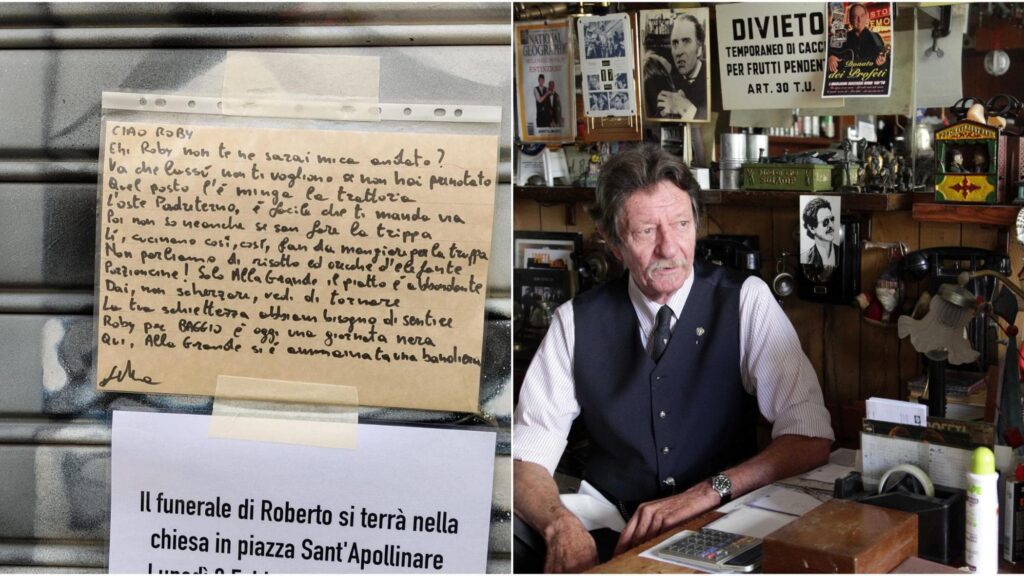 CIAO ROBY
Ehi Roby non te ne sarai mica andato?
Va che lassù non ti vogliono se non hai prenotato
Quel posto l'è minga la trattoria
L'oste Padreterno, è facile che ti manda via
Poi non so neanche se san fare la trippa
Lì, cucinano così, così, fan da mangiare per la truppa
Non parliamo di risotto ed orecchie d'elefante
Porzioncine! Solo Alla Grande il piatto è abbondante
Dai, non scherzare, vedi di tornare
La tua schiettezza abbiam bisogno di sentire
Roby par BAGGIO è oggi una giornata nera
Qui, Alla Grande si è ammainata una bandiera
Il funerale di Roberto si terrà nella
chiesa in piazza Sant'Apollinare
NATIONAL
GEOGRAPHIC
ESTINZIONE
DIVIETO
TEMPORANEO DI CACC
PER FRUTTI PENDENT
ART. 30 T.U.
Donato
dei Profeti